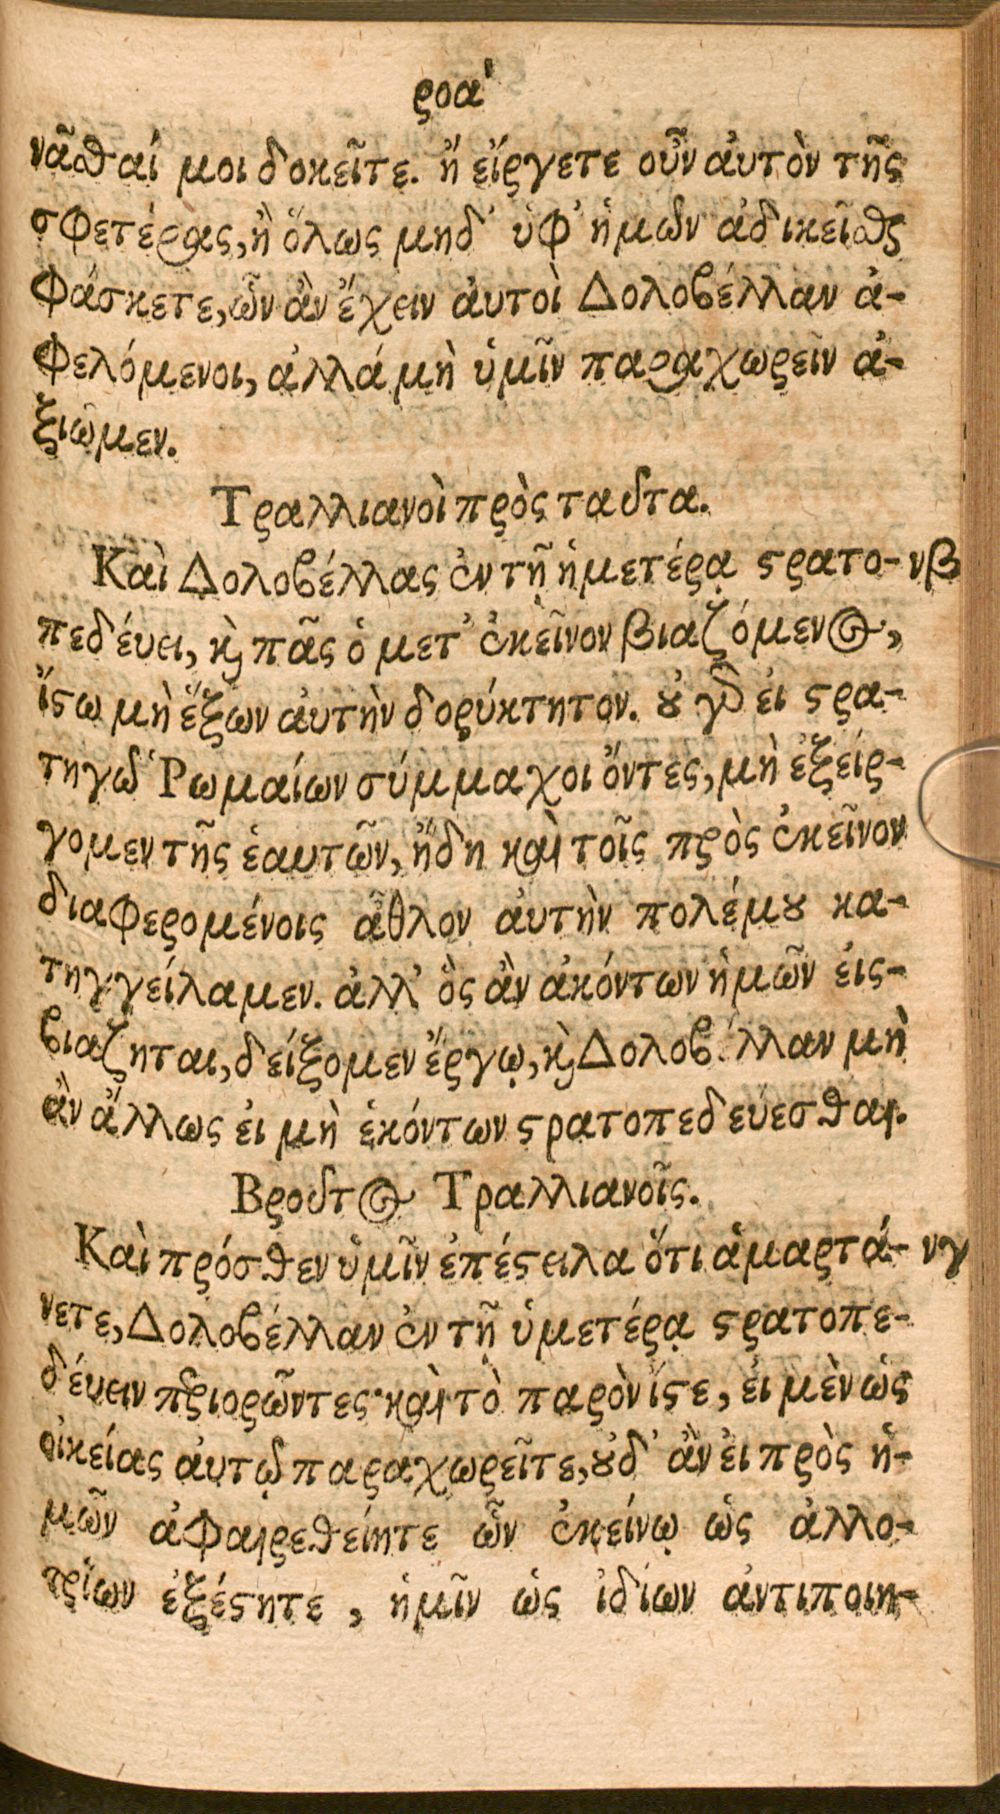 ροα'
νᾶσθαί μοι δοκεῖτε. ἢ εἴργετε οὖν αὐτὸν τῆς
σφετέρας, ἢ ὅλως μηδ' ὑφ' ἡμῶν ἀδικεῖσθαι
φάσκετε, ὧν ἂν ἔχειν αὐτοὶ Δολοβέλλαν ἀ-
φελόμενοι, ἀλλὰ μὴ ὑμῖν παραχωρεῖν ἀ-
ξιῶμεν.
Τραλλιανοὶ πρὸς ταῦτα.
Καὶ Δολοβέλλας ἐν τῇ ἡμετέρᾳ στρατο- νβ
πεδεύει, καὶ πᾶς ὁ μετ' ἐκεῖνον βιαζόμενος,
ἴστω μὴ ἕξων αὐτὴν δορύκτητον. οὐ γὰρ εἰ στρα-
τηγοῦ Ῥωμαίων σύμμαχοι ὄντες, μὴ ἐξείρ-
γομεν τῆς ἑαυτῶν, ἤδη καὶ τοῖς πρὸς ἐκεῖνον
διαφερομένοις ἆθλον αὐτὴν πολέμου κα-
τηγγείλαμεν. ἀλλ' ὃς ἂν ἀκόντων ἡμῶν εἰς-
βιαζηται, δείξομεν ἔργῳ, καὶ Δολοβέλλαν μὴ
ἂν ἄλλως εἰ μὴ ἑκόντων στρατοπεδεύεσθαι.
Βροῦτος Τραλλιανοῖς.
Καὶ πρόσθεν ὑμῖν ἐπέστειλα ὅτι ἁμαρτά- νγ
νετε, Δολοβέλλαν ἐν τῇ ὑμετέρᾳ στρατοπε-
δεύειν περιορῶντες· καὶ τὸ παρὸν ἴστε, εἰ μὲν ὡς
οἰκείας αὐτῷ παραχωρεῖτε, οὐδ' ἂν εἰ πρὸς ἡ-
μῶν ἀφαιρεθείητε ὧν ἐκείνῳ ὡς ἀλλο-
τρίων ἐξέστητε, ἡμῖν ὡς ἰδίων ἀντιποιη-